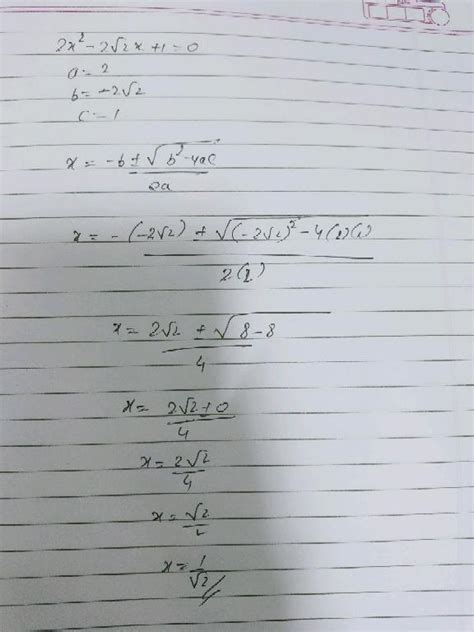 2x² - 2√2x + 1 = 0
a = 2
b = -2√2
c = 1
x = -b ± √b² - 4ac / 2a
x = -(-2√2) ± √(-2√2)² - 4(2)(1) / 2(2)
x = 2√2 ± √8 - 8 / 4
x = 2√2 + 0 / 4
x = 2√2 / 4
x = √2 / 2
x = 1 / √2 //